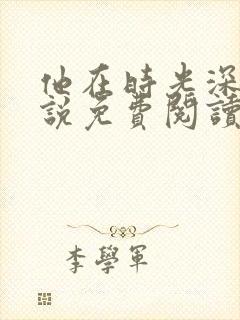 他在時光深
說免費閱讀
李學軍